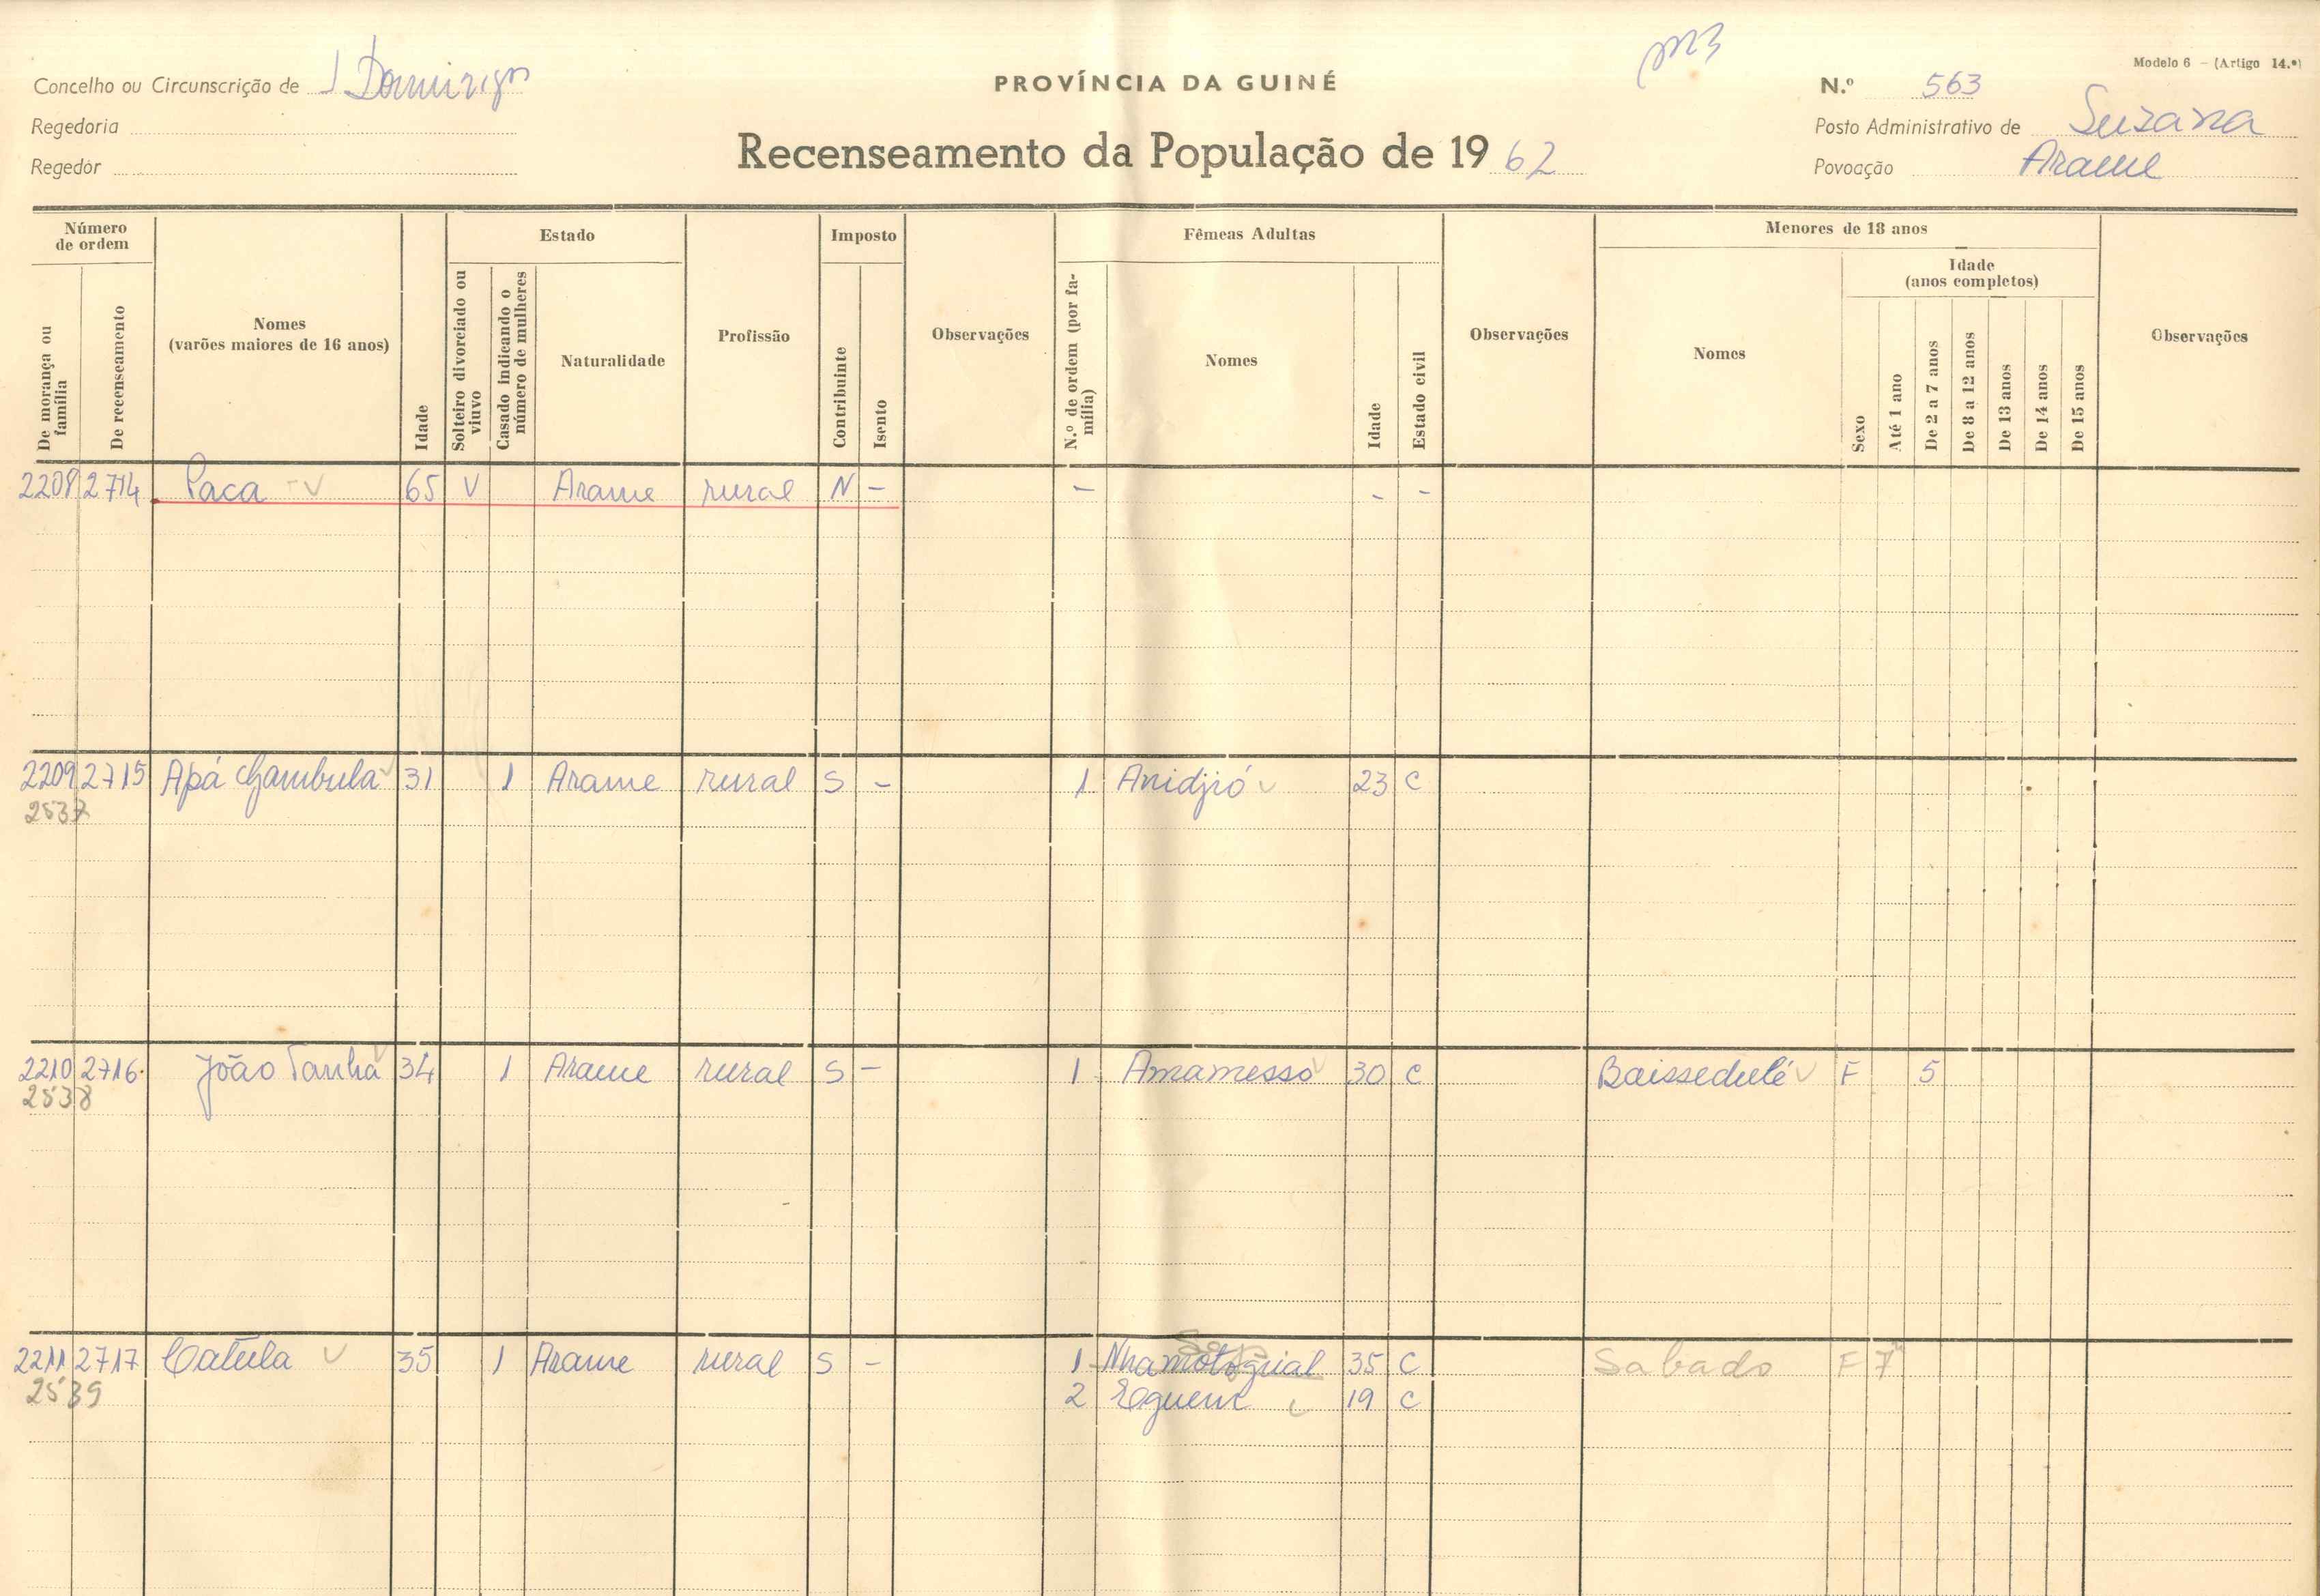 Modelo 6 - (Artigo 14.º)
Concelho ou Circunscrição de S Domingos
PROVÍNCIA DA GUINÉ
N.º 563
Regedoria
Posto Administrativo de Suzana
Regedor
Recenseamento da População de 1962
Povoação Arame
Número de ordem
De morança ou família
De recenseamento
Nomes
(varões maiores de 16 anos)
Idade
Estado
Solteiro divorciado ou viuvo
Casado indicando o número de mulheres
Naturalidade
Profissão
Imposto
Contribuinte
Isento
Observações
Fêmeas Adultas
N.º de ordem (por família)
Nomes
Idade
Estado civil
Observações
Menores de 18 anos
Nomes
Idade
(anos completos)
Sexo
Até 1 ano
De 2 a 7 anos
De 8 a 12 anos
De 13 anos
De 14 anos
De 15 anos
Observações
2208 2714 Paca - V 65 V Arame rural N - - - -
2209 2715 Apá Chambula 31 1 Arame rural S - 1 Anidjió 23 C
2537
2210 2716 João Tanhá 34 1 Arame rural S - 1 Amamesso 30 C Baissedulé F 5
2538
2211 2717 Catula 35 1 Arame rural S - 1 35 C Sabado F 7
2539 2 19 C